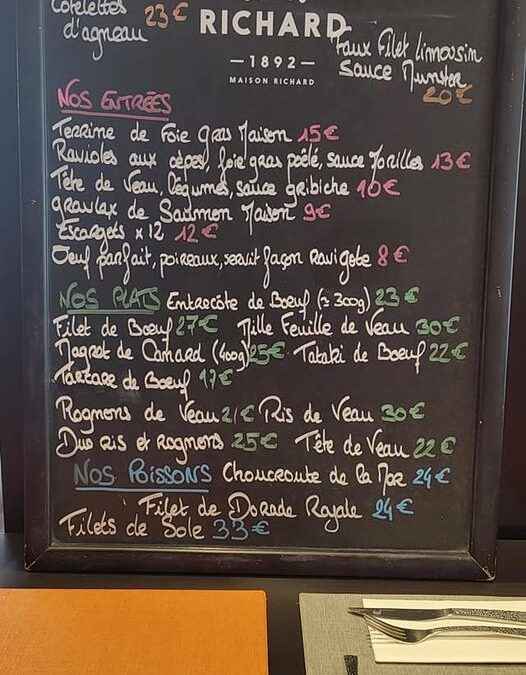 Côtelettes d'agneau 23€
RICHARD
— 1892 —
MAISON RICHARD
Faux Filet Limousin
Sauce Munster
20€
NOS ENTRÉES
Terrime de Foie gras Maison 15€
Ravioles aux cèpes, foie gras poêlé, sauce Morilles 13€
Tête de Veau, légumes, sauce gribiche 10€
gravlax de Saumon Maison 9€
Escargots x12 12€
Oeuf parfait, poireaux, servit façon Ravigote 8€
NOS PLATS Entrecôte de Boeuf (≃ 300g) 23€
Filet de Boeuf 27€ Mille Feuille de Veau 30€
Magret de Canard (400g) 25€ Tataki de Boeuf 22€
Tartare de Boeuf 17€
Rognons de Veau 21€ Ris de Veau 30€
Duo ris et rognons 25€ Tête de Veau 22€
NOS POISSONS Choucroute de la Mer 24€
Filet de Dorade Royale 24€
Filets de Sole 33€